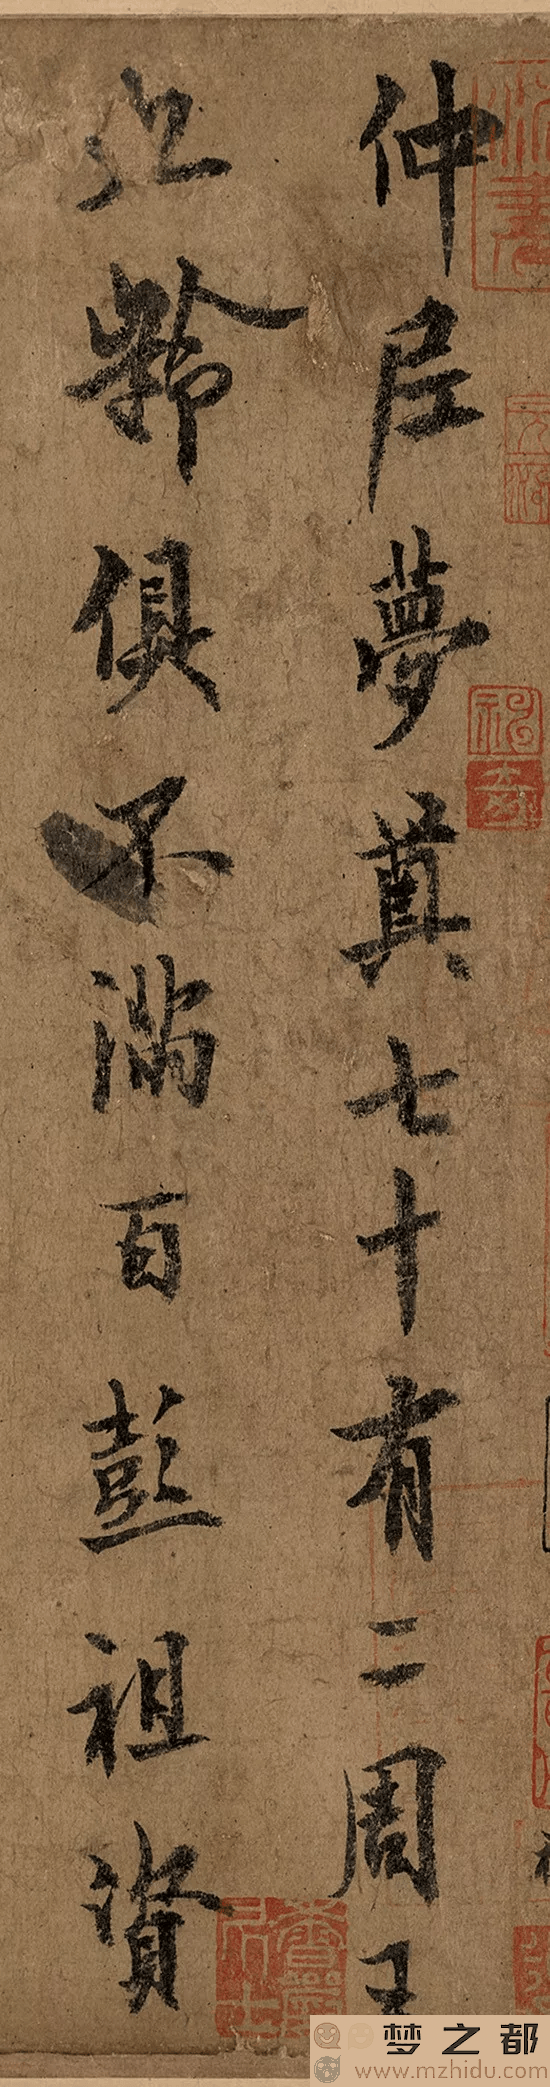 仲尼夢奠七十有二周王
九齡俱不滿百彭祖資
梦之都
www.mzhidu.com